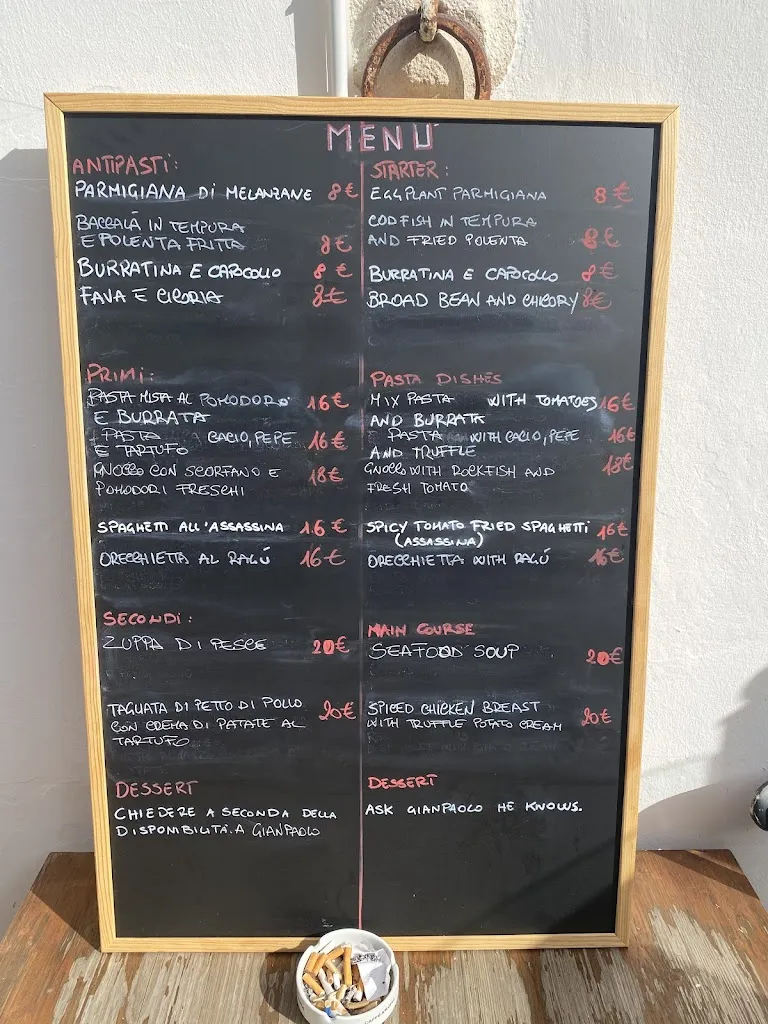 MENÚ
ANTIPASTI:
PARMIGIANA DI MELANZANE 8€
BACCALÀ IN TEMPURA
E POLENTA FRITTA 8€
BURRATINA E CAPOCOLLO 8€
FAVA E CICORIA 8€
PRIMI:
PASTA MISTA AL POMODORO 16€
E BURRATA
PASTA CACIO, PEPE 16€
E TARTUFO
GNOCCO CON SCORFANO E 18€
POMODORI FRESCHI
SPAGHETTI ALL'ASSASSINA 16€
ORECCHIETTA AL RAGÚ 16€
SECONDI:
ZUPPA DI PESCE 20€
TAGLIATA DI PETTO DI POLLO 20€
CON CREMA DI PATATE AL
TARTUFO
DESSERT
CHIEDERE A SECONDA DELLA
DISPONIBILITÀ. A GIANPAOLO
STARTER:
EGGPLANT PARMIGIANA 8€
CODFISH IN TEMPURA
AND FRIED POLENTA 8€
BURRATINA E CAPOCOLLO 8€
BROAD BEAN AND CHICORY 8€
PASTA DISHES
MIX PASTA WITH TOMATOES 16€
AND BURRATA
PASTA WITH CACIO, PEPE 16€
AND TRUFFLE
GNOCCO WITH ROCKFISH AND 18€
FRESH TOMATO
SPICY TOMATO FRIED SPAGHETTI 16€
(ASSASSINA)
ORECCHIETTA WITH RAGÚ 16€
MAIN COURSE
SEAFOOD SOUP 20€
SPICED CHICKEN BREAST
WITH TRUFFLE POTATO CREAM 20€
DESSERT
ASK GIANPAOLO HE KNOWS.